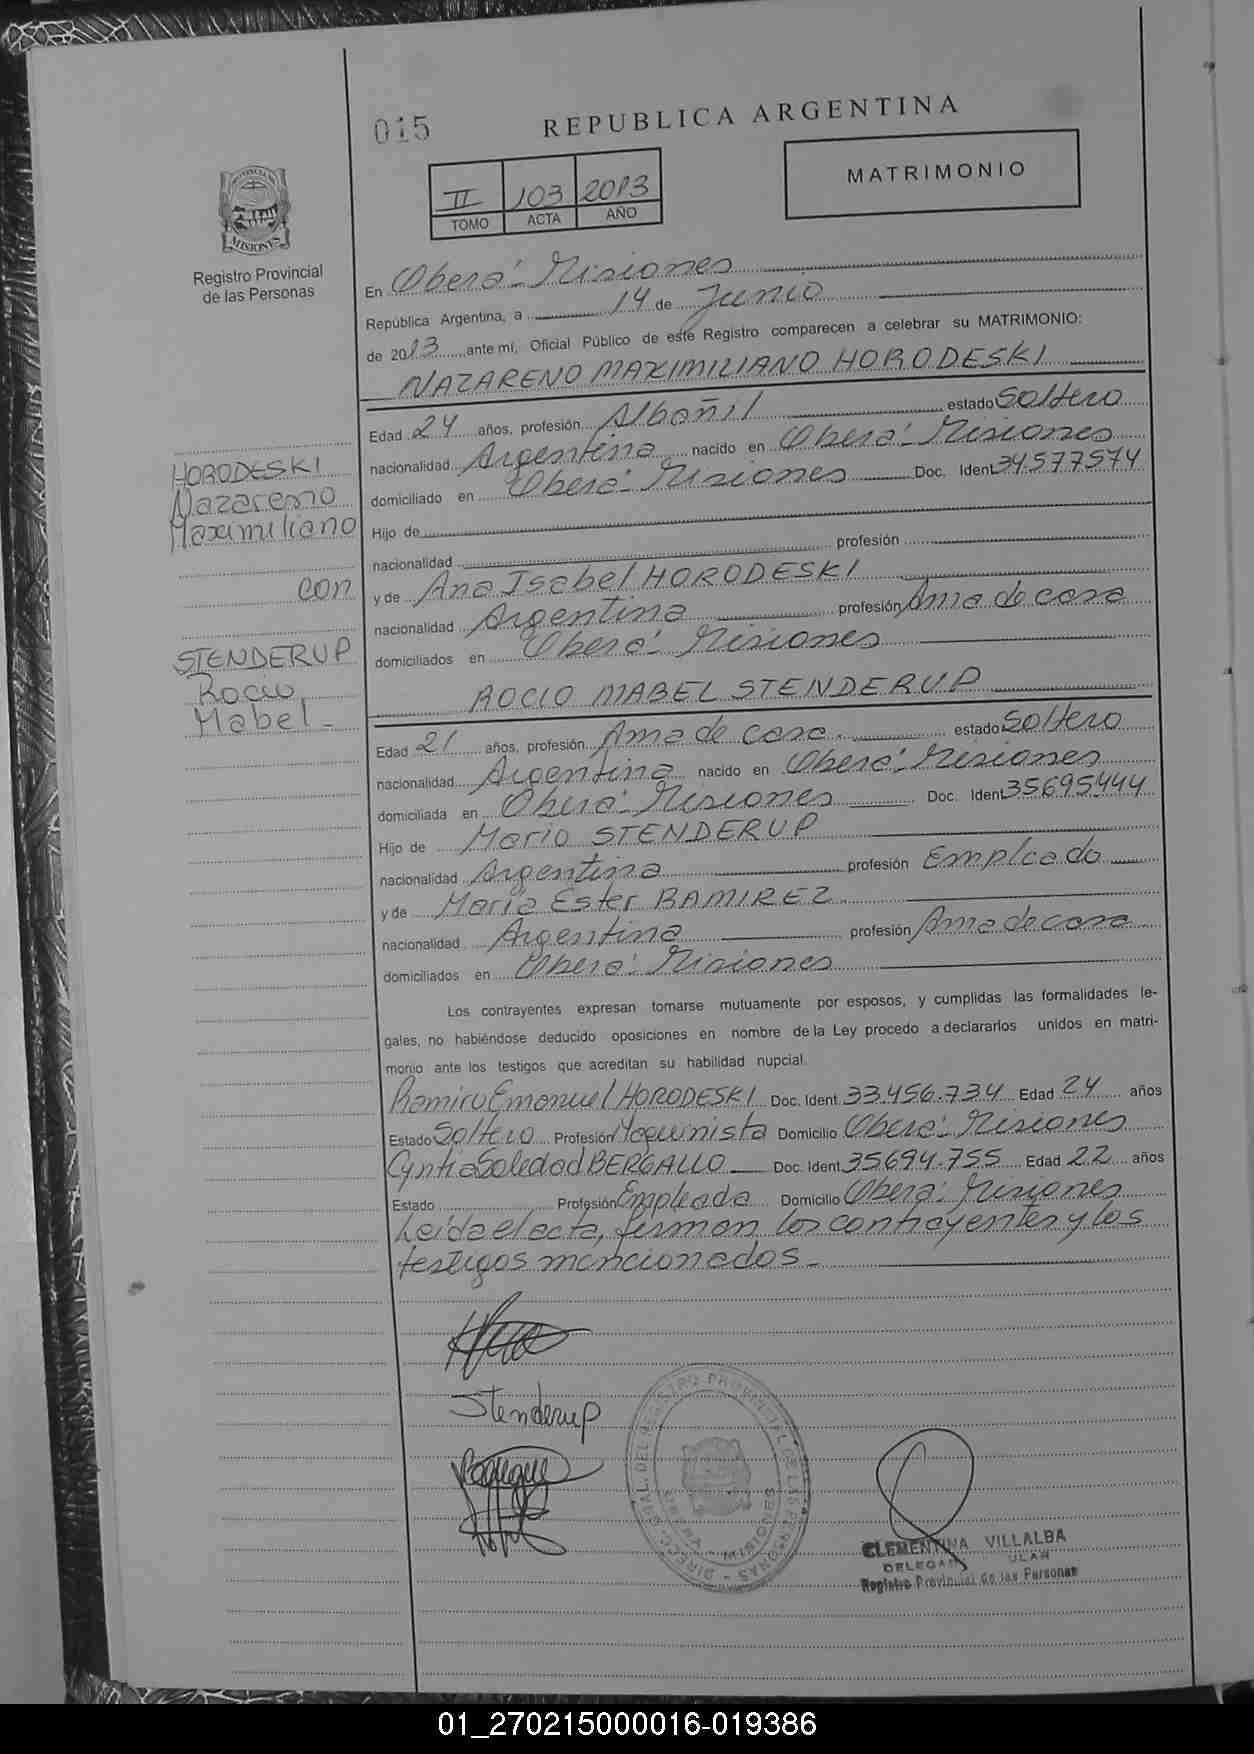 015
REPUBLICA ARGENTINA
MATRIMONIO
II 103 2013
TOMO ACTA AÑO
PROVINCIA DE
MISIONES
Registro Provincial
de las Personas
En Oberá - Misiones
República Argentina, a 14 de Junio
de 2013 ante mi, Oficial Público de este Registro comparecen a celebrar su MATRIMONIO:
NAZARENO MAXIMILIANO HORODESKI
Edad 24 años, profesión Albañil estado Soltero
nacionalidad Argentina nacido en Oberá - Misiones
domiciliado en Oberá - Misiones Doc. Ident 34.577574
Hijo de
nacionalidad profesión
y de Ana Isabel HORODESKI
nacionalidad Argentina profesión Ama de casa
domiciliados en Oberá - Misiones
HORODESKI
Nazareno
Maximiliano
con
STENDERUP
Rocio
Mabel -
ROCIO MABEL STENDERUP
Edad 21 años, profesión Ama de casa. estado Soltero
nacionalidad Argentina nacido en Oberá - Misiones
domiciliada en Oberá - Misiones Doc. Ident 35695444
Hijo de Mario STENDERUP
nacionalidad Argentina profesión Empleado
y de Maria Ester RAMIREZ
nacionalidad Argentina profesión Ama de casa
domiciliados en Oberá - Misiones
Los contrayentes expresan tomarse mutuamente por esposos, y cumplidas las formalidades le-
gales, no habiéndose deducido oposiciones en nombre de la Ley procedo a declararlos unidos en matri-
monio ante los testigos que acreditan su habilidad nupcial.
Ramiro Emanuel HORODESKI Doc. Ident 33.456.734 Edad 24 años
Estado Soltero Profesión Maquinista Domicilio Oberá - Misiones
Cyntia Soledad BERGALLO Doc. Ident 35694.755 Edad 22 años
Estado Profesión Empleada Domicilio Oberá - Misiones
Leida el acta, firman los contrayentes y los
testigos mencionados -
Stenderup
DIRECC. GRAL. DEL REGISTRO PROVINCIAL DE LAS PERSONAS
MISIONES
CLEMENTINA VILLALBA
Registro Provincial de las Personas
01_270215000016-019386